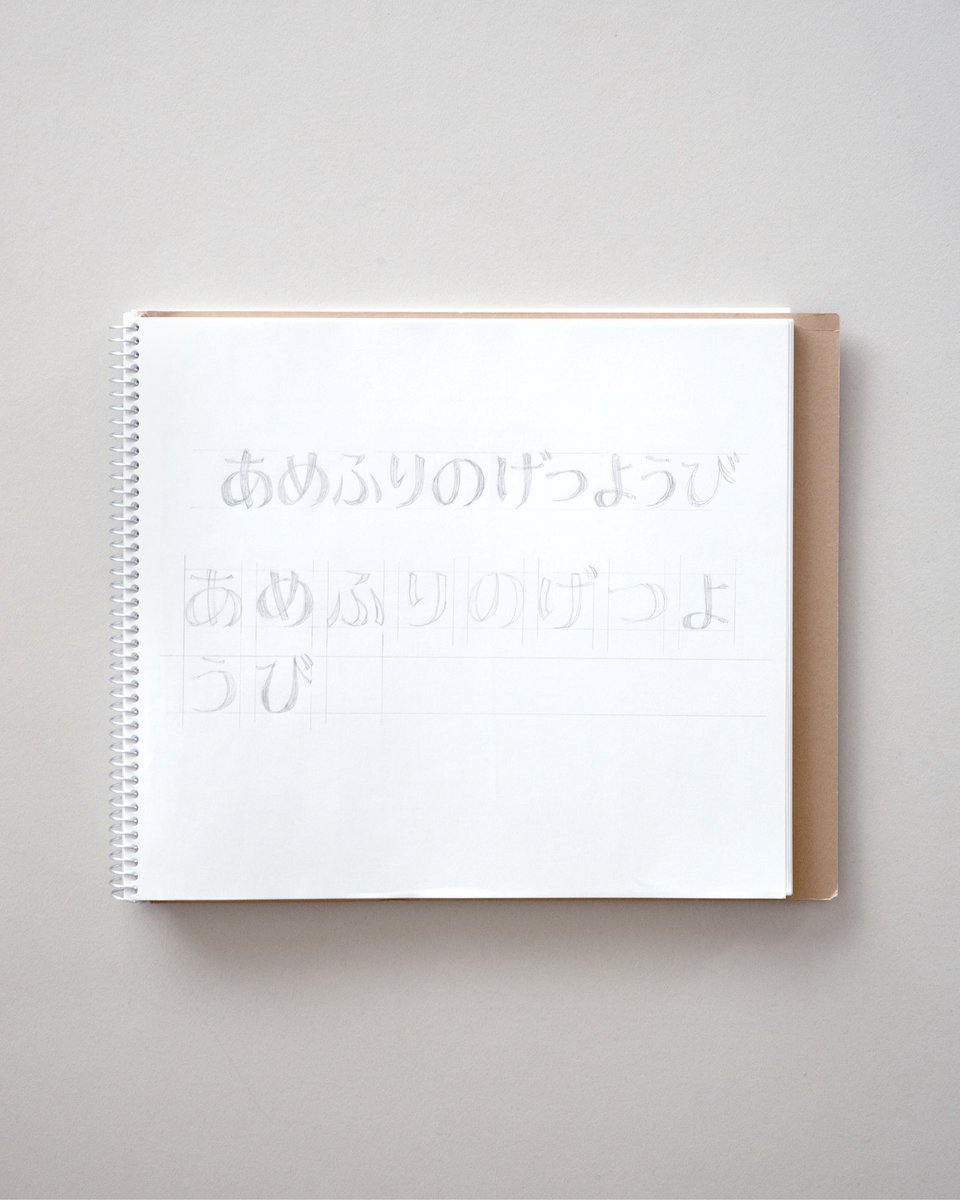 あめふりのげつようび
あめふりのげつよ
うび